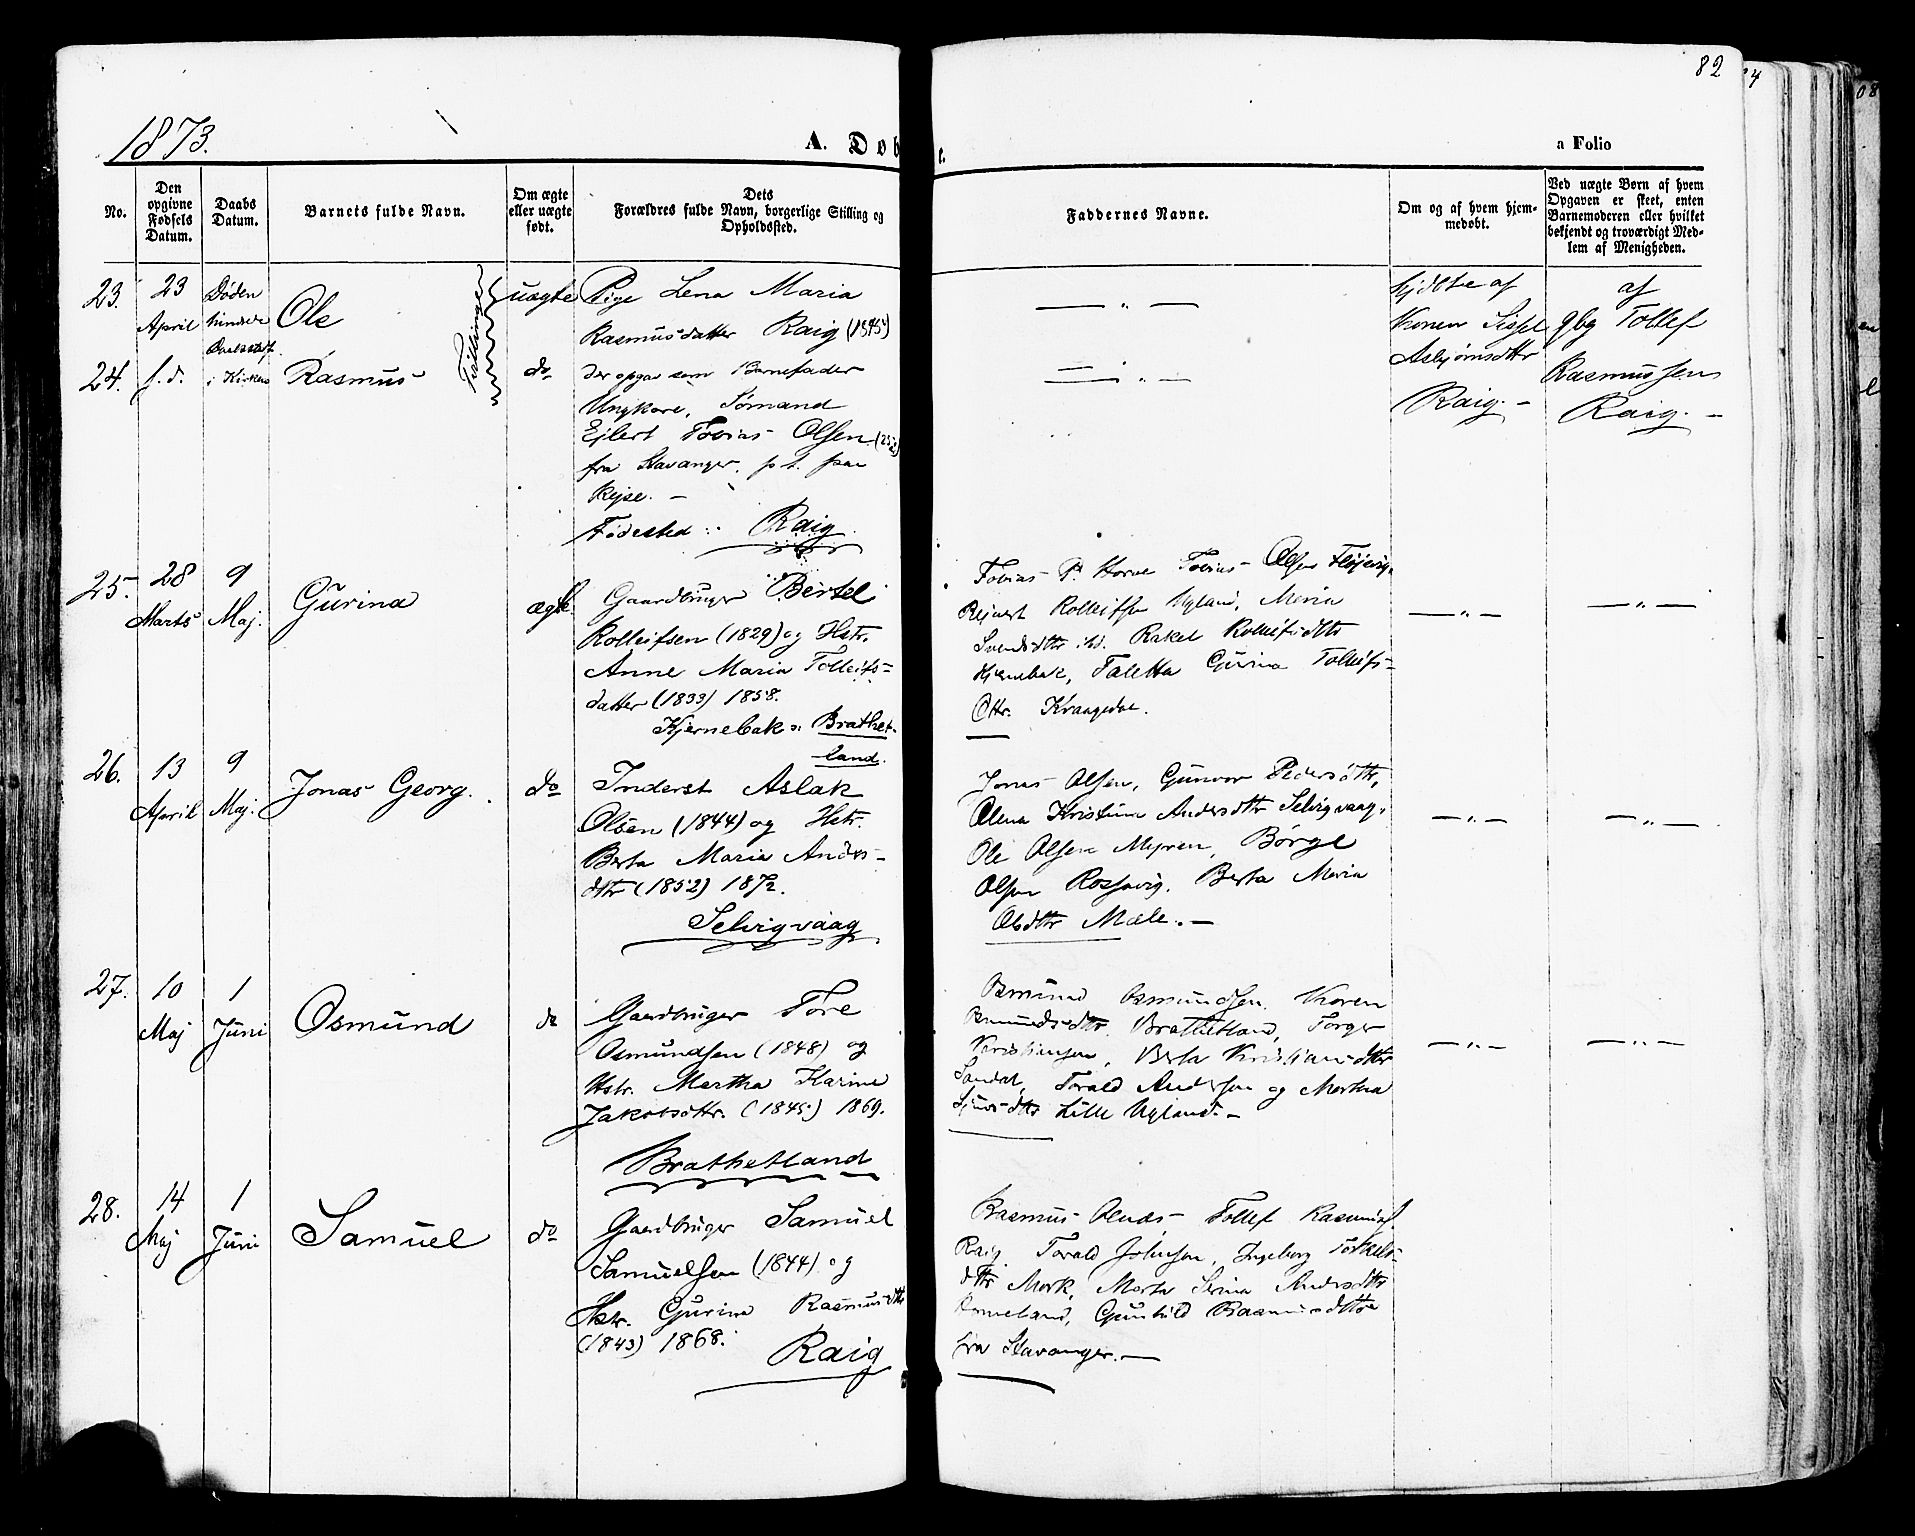 82
1873.
A. Døbte.
a Folio
No.
Den opgivne Fødsels Datum.
Daabs Datum.
Barnets fulde Navn.
Om ægte eller uægte født.
Dets Forældres fulde Navn, borgerlige Stilling og Opholdssted.
Faddernes Navne.
Om og af hvem hjem-
medøbt.
Ved uægte Børn af hvem
Opgaven er skeet, enten
Barnemoderen eller hvilket
bekjendt og troværdigt Med-
lem af Menigheden.
23.
23
April
Døden
hindrede
Daabsbekr.
i Kirken
Ole
Tvillinger
uægte
Pige Lena Maria
Rasmusdatter Raig (1845)
24.
s. d.
Rasmus
do
der opgav som Barnefader
Ungkare, Sømand
Ejlert Tobias Olsen
fra Stavanger. p. t. paa
Rejse. —
Fødested: Raig
— " —
— " —
Hjdbte af
Konen Sissel
Asbjørnsdttr
Raig. —
af
gbg Tollef
Rasmussen
Raig. —
25.
28
Marts
9
Maj.
Gurina
ægte
Gaardbruger Bertel
Rolleifsen (1829) og Hstr.
Anne Maria Tolleifs=
datter (1833) 1858.
Kjernebak : Brathet-
land.
Tobias P. Horve Tobias Olsen Fløjevig,
Rejnert Rolleifsen Ugland, Maria
Svendsdttr ibd. Rakel Rolleifsdttr
Hjernebak, Taletta Gurina Tolleifs=
dttr. Kraagedal.
— " —
— " —
26.
13
April
9
Maj.
Jonas Georg.
do
Inderst Aslak
Olsen (1844) og Hstr.
Berta Maria Anders-
dttr (1852) 1872.
Selvigvaag
Jonas Olsen, Gunvor Pedersdttr,
Olena Kristine Andersdttr Selvigvaag,
Ole Olsen Myren, Børge
Olsen Rossavig, Berta Maria
Olsdttr Mæle. —
— " —
— " —
27.
10
Maj
1
Juni
Osmund
do
Gaardbruger Tore
Osmundsen (1848) og
Hstr. Martha Karine
Jakobsdttr. (1845) 1869.
Brathetland
Osmund Osmundsen, Karen
Osmundsdttr. Brathetland, Torger
Kristiansen, Berta Kristiansdttr
Sandal, Torald Andersen og Martha
Sjursdttr Lille Ugland. —
— " —
— " —
28.
14
Maj
1
Juni
Samuel
do
Gaardbruger Samuel
Samuelsen (1844) og
Hstr. Gurine Rasmusdttr
(1843) 1868.
Raig
Rasmus Tollef Rasmus.
Raig Torald Johnsen, Ingeborg Torkels-
dttr Mork, Marta Serina Andersdttr
Gunhild Rasmusdttr
fra Stavanger. —